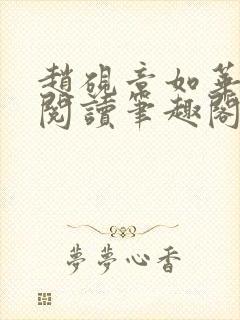 趙硯章如華
閱讀筆趣閣
夢夢心香